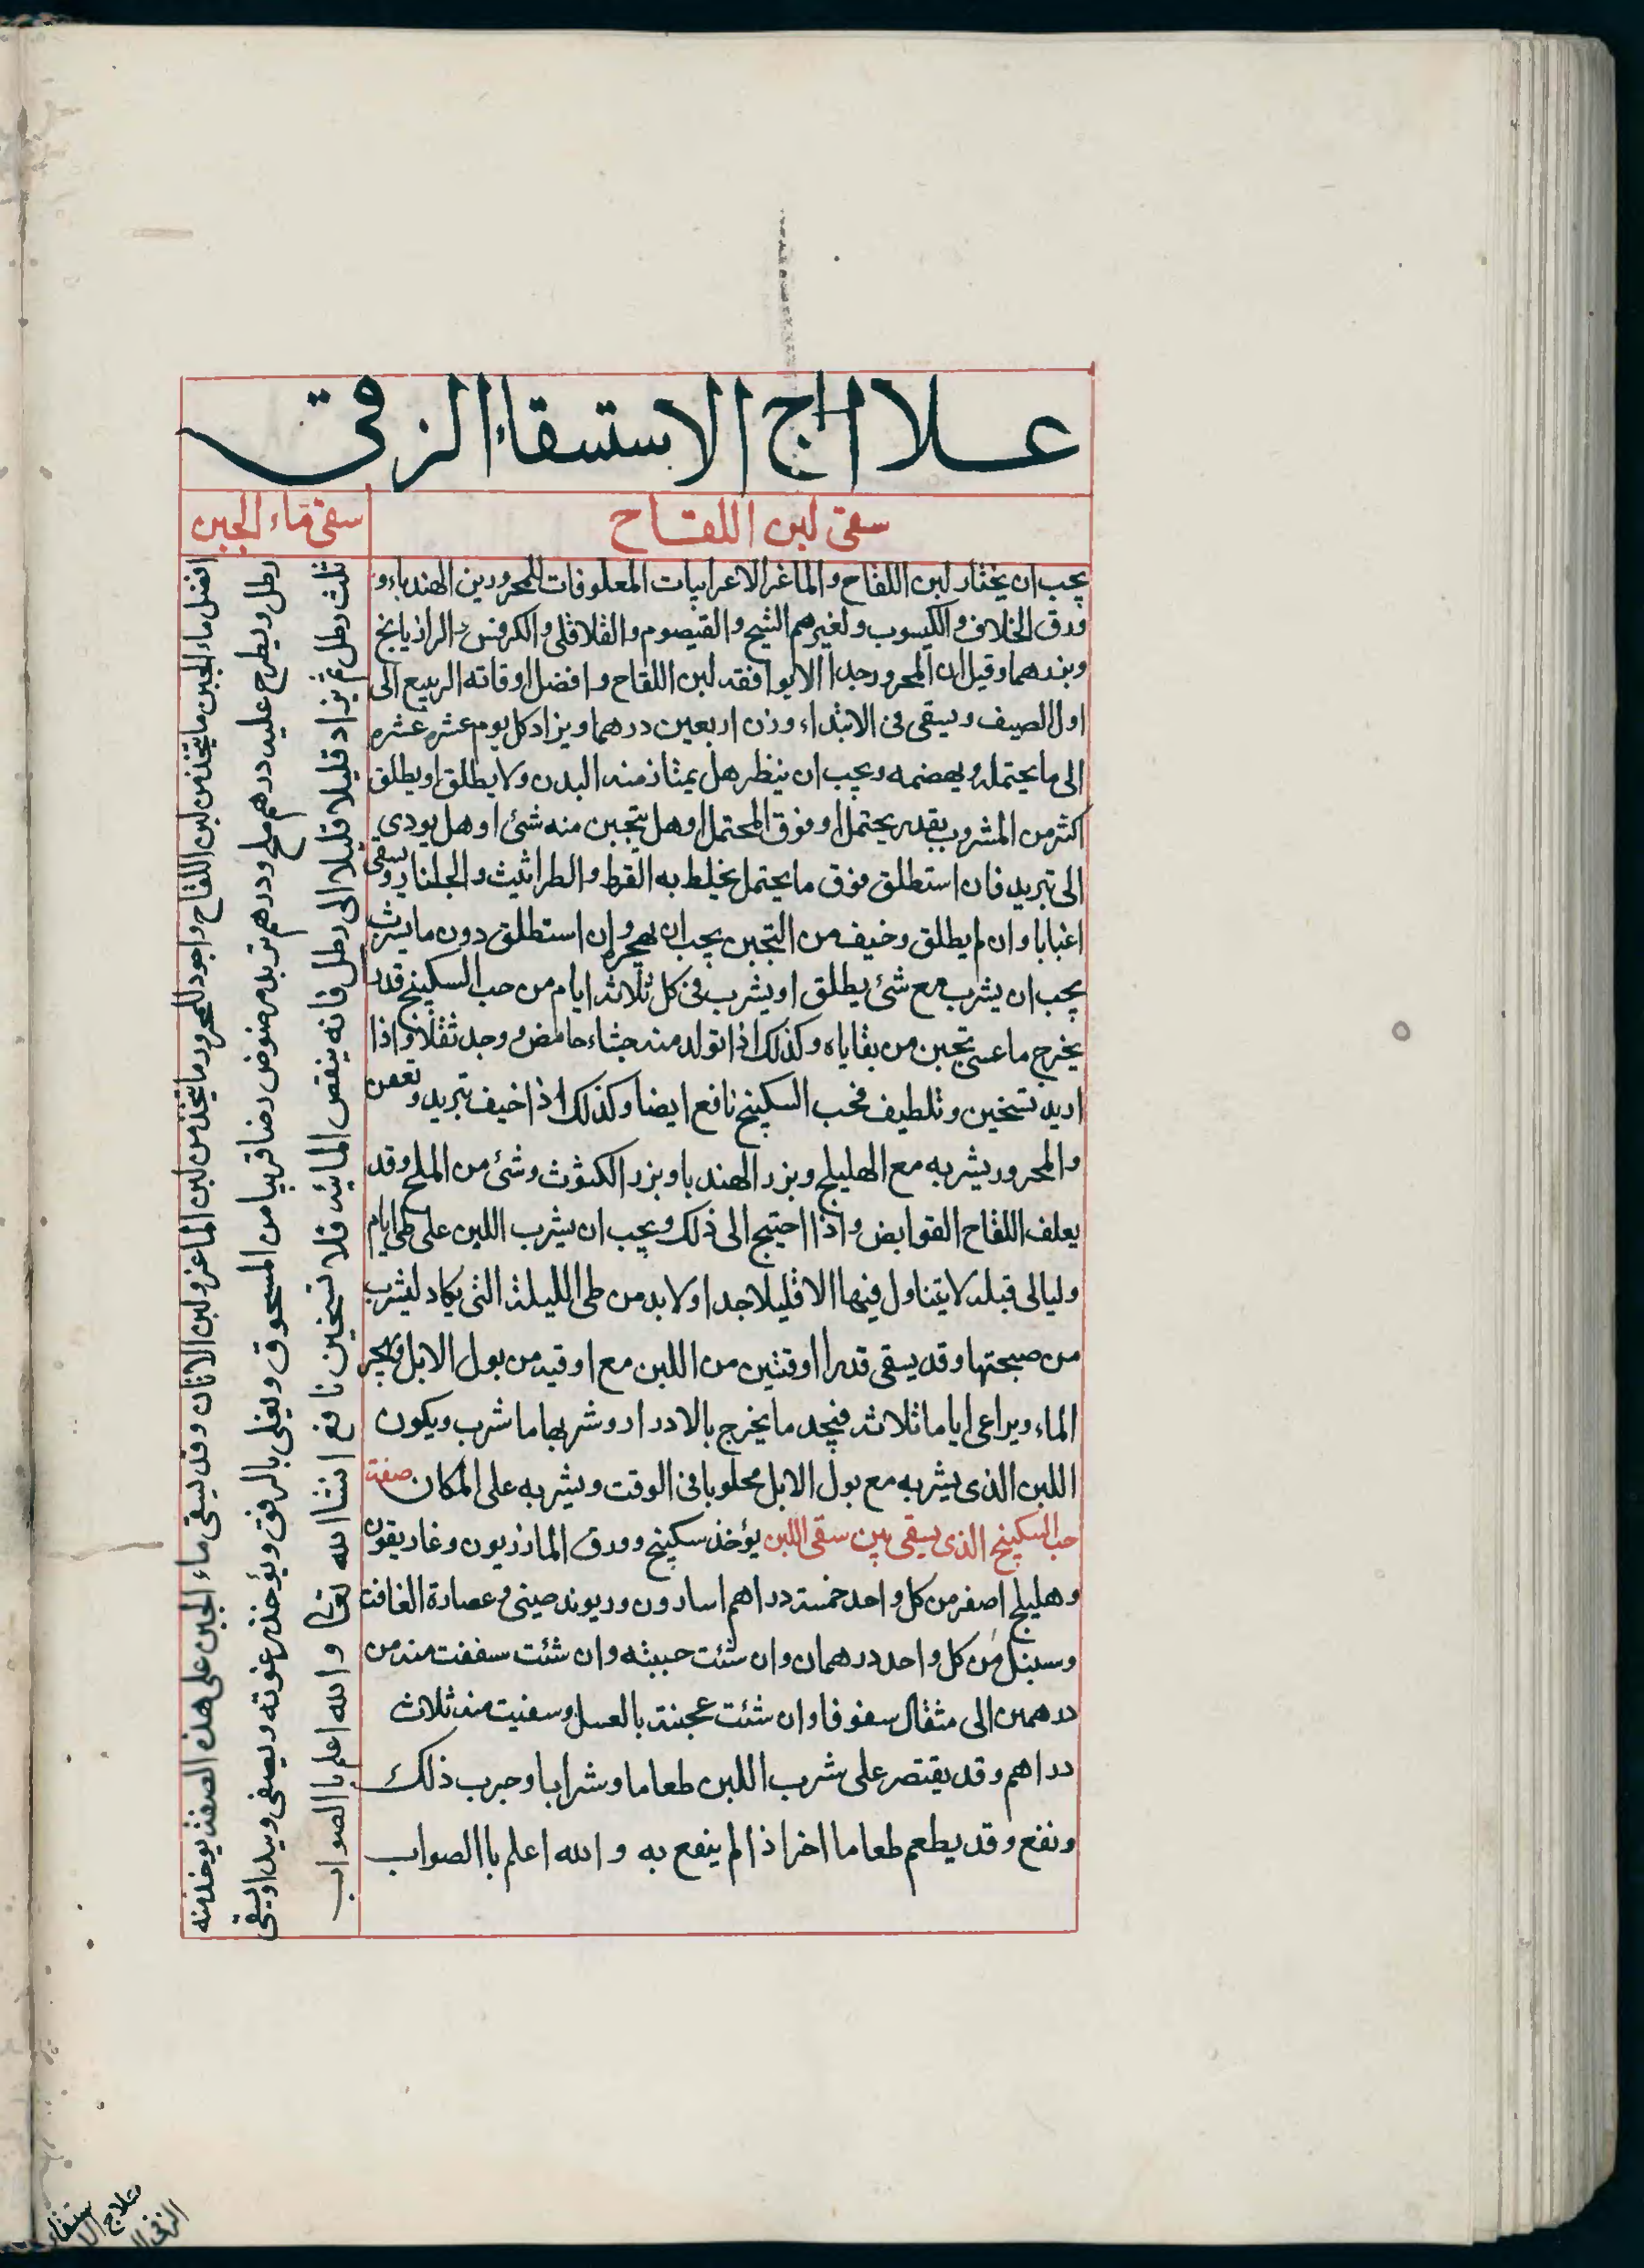 علاج الاستسقاء الزقى
سقى لبن اللقاح
يجب ان يختار لبن اللقاح والماغر الاعرابيات المعلوفات للمحرورين الهندباء و
ورق الخلاف والكيسوب ولغيرهم الشيح والقيصوم والقلاقلى والكرفس والرازيانج
وبزرهما وقيل ان المحرور جدا لا يوافقه لبن اللقاح وافضل اوقاته الربيع الى
اول الصيف ويسقى فى الابتداء وزن اربعين درهما ويزاد كل يوم عشره عشره
الى ما يحتمله ويهضمه ويجب ان ينظر هل يمتاز منه البدن ولا يطلق او يطلق
اكثر من المشروب بقدر يحتمل او فوق المحتمل او هل يتجبن منه شئ او هل يودى
الى تبريد فان استطلق فوق ما يحتمل يخلط به القرط والطراثيث والجلنار ويسقى
اغبابا وان لم يطلق وخيف من التجبن يجب ان يهجره وان استطلق دون ما يشرب
يجب ان يشرب مع شئ يطلق او يشرب فى كل ثلاثة ايام من حب السكبينج قدرا
يخرج ما عسى تجبن من بقاياه وكذلك اذا تولد منه جشاء حامض ووجد ثقلا واذا
اريد تسخين وتلطيف فحب السكبينج نافع ايضا وكذلك اذا خيف تبريد وتعفن
والمحرور يشربه مع الهليلج وبزر الهندبا وبزر الكشوث وشئ من الملح وقد
يعلف اللقاح القوابض واذا احتيج الى ذلك ويجب ان يشرب اللبن على طى ايام
وليالى قبله لا يتناول فيها الا قليلا جدا ولا بد من طى الليلة التى يكاد ليشرب
من صبحتها وقد يسقى قدر اوقتين من اللبن مع اوقيه من بول الابل ويهجر
الماء ويراعى اياما ثلاثه فيجد ما يخرج بالادرار وشربها ما شرب ويكون
اللبن الذى يشربه مع بول الابل محلوبا فى الوقت ويشربه على المكان صفة
حب السكبينج الذى يسقى بين سقى اللبن يؤخذ سكبينج وورق المازريون وغاريقون
وهليلج اصفر من كل واحد خمسة دراهم اسارون وريوند صينى وعصارة الغافت
وسنبل من كل واحد درهمان وان شئت حببته وان شئت سففت منه من
درهمين الى مثقال سفوفا وان شئت عجنته بالعسل وسقيت منه ثلاث
دراهم وقد يقتصر على شرب اللبن طعاما وشرابا وجرب ذلك
ونفع وقد يطعم طعاما اخر اذ الم ينفع به والله اعلم باالصواب
سقى ماء الجبن
افضل ماء الجبن ما يتخذ من لبن اللقاح واجود للمحرور ما يتخذ من لبن الماعز ولبن الاتان وقد يسقى ماء الجبن على هذه الصفة يوخذ منه
رطل ويطرح عليه درهم ملح ودرهم تربد مرضوض رضا قريبا من المسحوق ويغلى بالرفق ويؤخذ رغوته ويصفى ويبدا ويسقى
ثلث رطل ثم يزاد قليلا قليلا الى رطل فانه ينقص المائيه فلا تسخين نافع انشا الله تعالى والله اعلم باالصواب
علاج الاستسقاء
الزقى